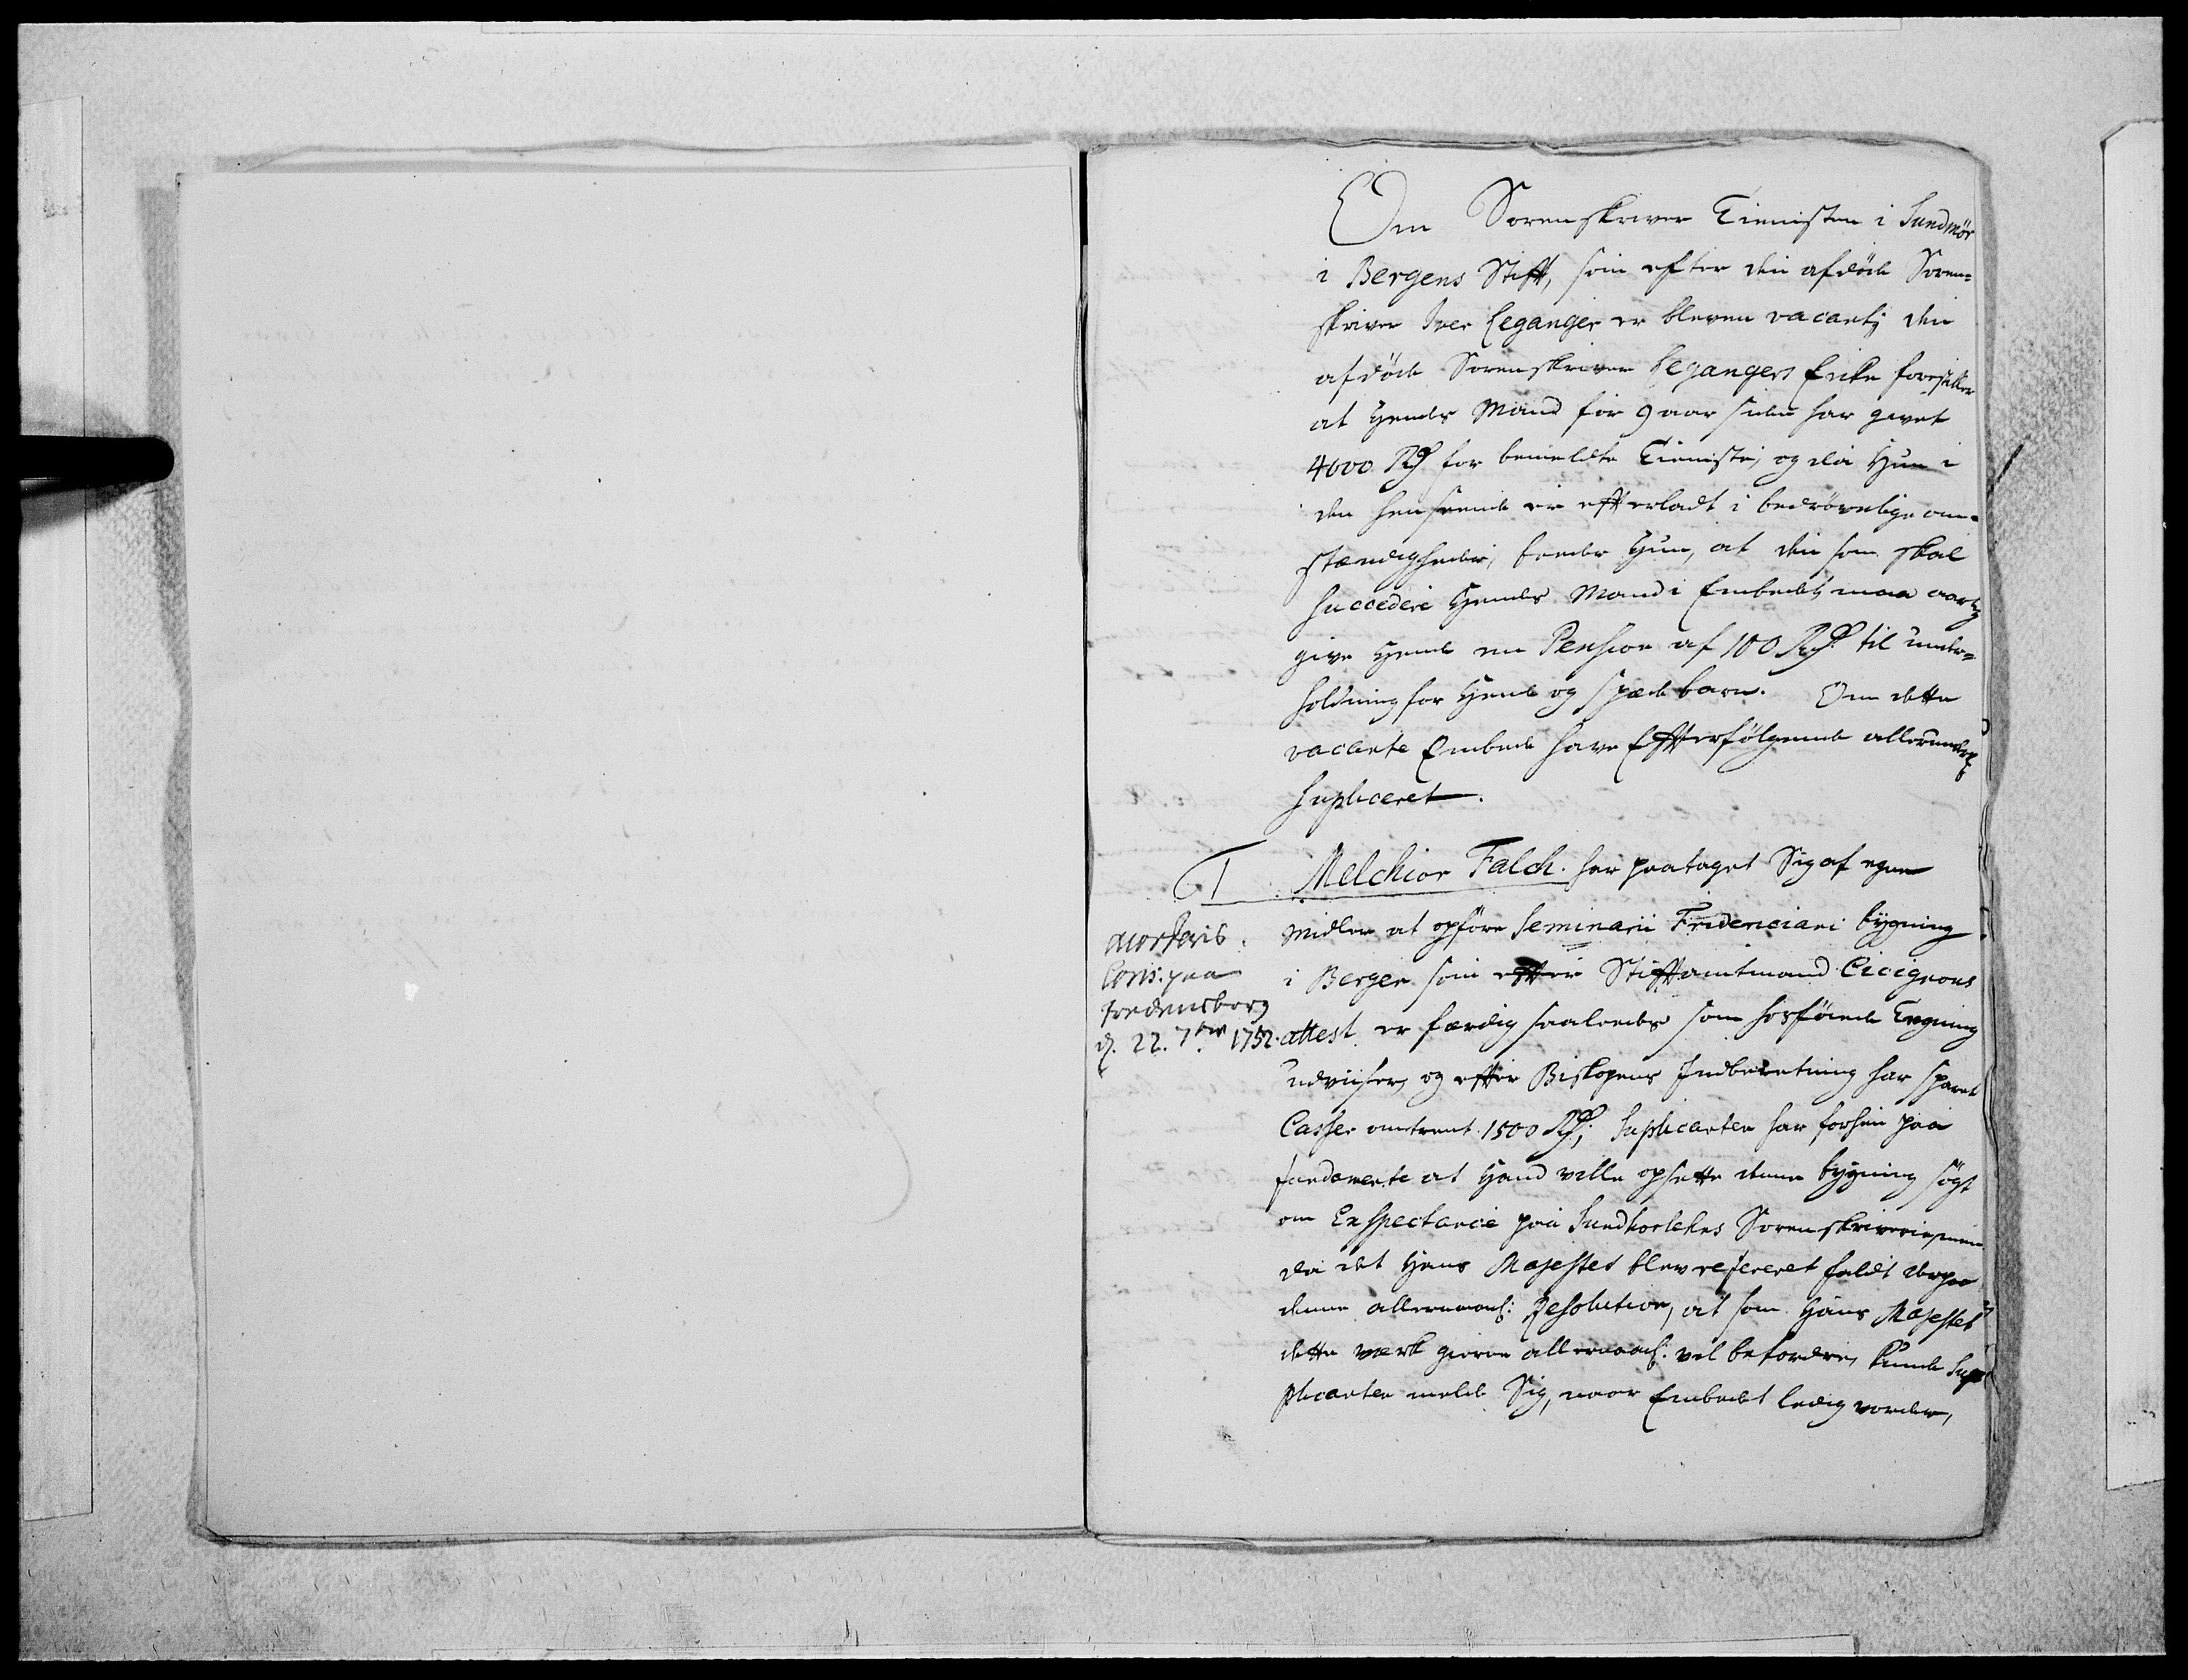 Om Sorenskriver Tienisten i Sundmör
i Bergens Stift, som efter den afdöde Soren-
skriver Iver Leganger er bleven vacant; den
afdöde Sorenskriver Legangers Encke forestiller
at Hendes Mand for 9 aar siden har givet
4000 Rd for bemeldte Tieniste, og da Hun i
den henseende er efterladt i bedrövelige om-
stændigheder, beeder Hun, at den som skal
succedere Hendes Mand i Embedet, maa aarlig
give Hende en Pension af 100 Rdr til under-
holdning for Hende og spæde barn. Om dette
vacante Embede have Efterfölgende allerunderd:
supliceret.
1 Melchior Falch. har paataget Sig af egne
midler at opföre Seminarii Fridericiani bygning
i Bergen som efter Stiftamtmand Cicignons
attest er færdig saaledes som hosföiede Tegning
udviiser, og efter Biskopens Indberetning har sparet
Casser omtrent 1500 Rd; Suplicanten har forhen paa
fundamente at Hand ville opsette denne bygning sögt
om Exspectance paa Sundhorlehns Sorenskriverie, men
da det Hans Majestet blev refereret faldt derpaa
denne allernaad: Resolution, at som Hans Majestet
dette værk gierne allernaad: vil befordre, kunde Sup-
plicanten melde Sig, naar Embedet ledig vorder,
Cons: paa
Fredensborg
d. 22. 7br 1752.